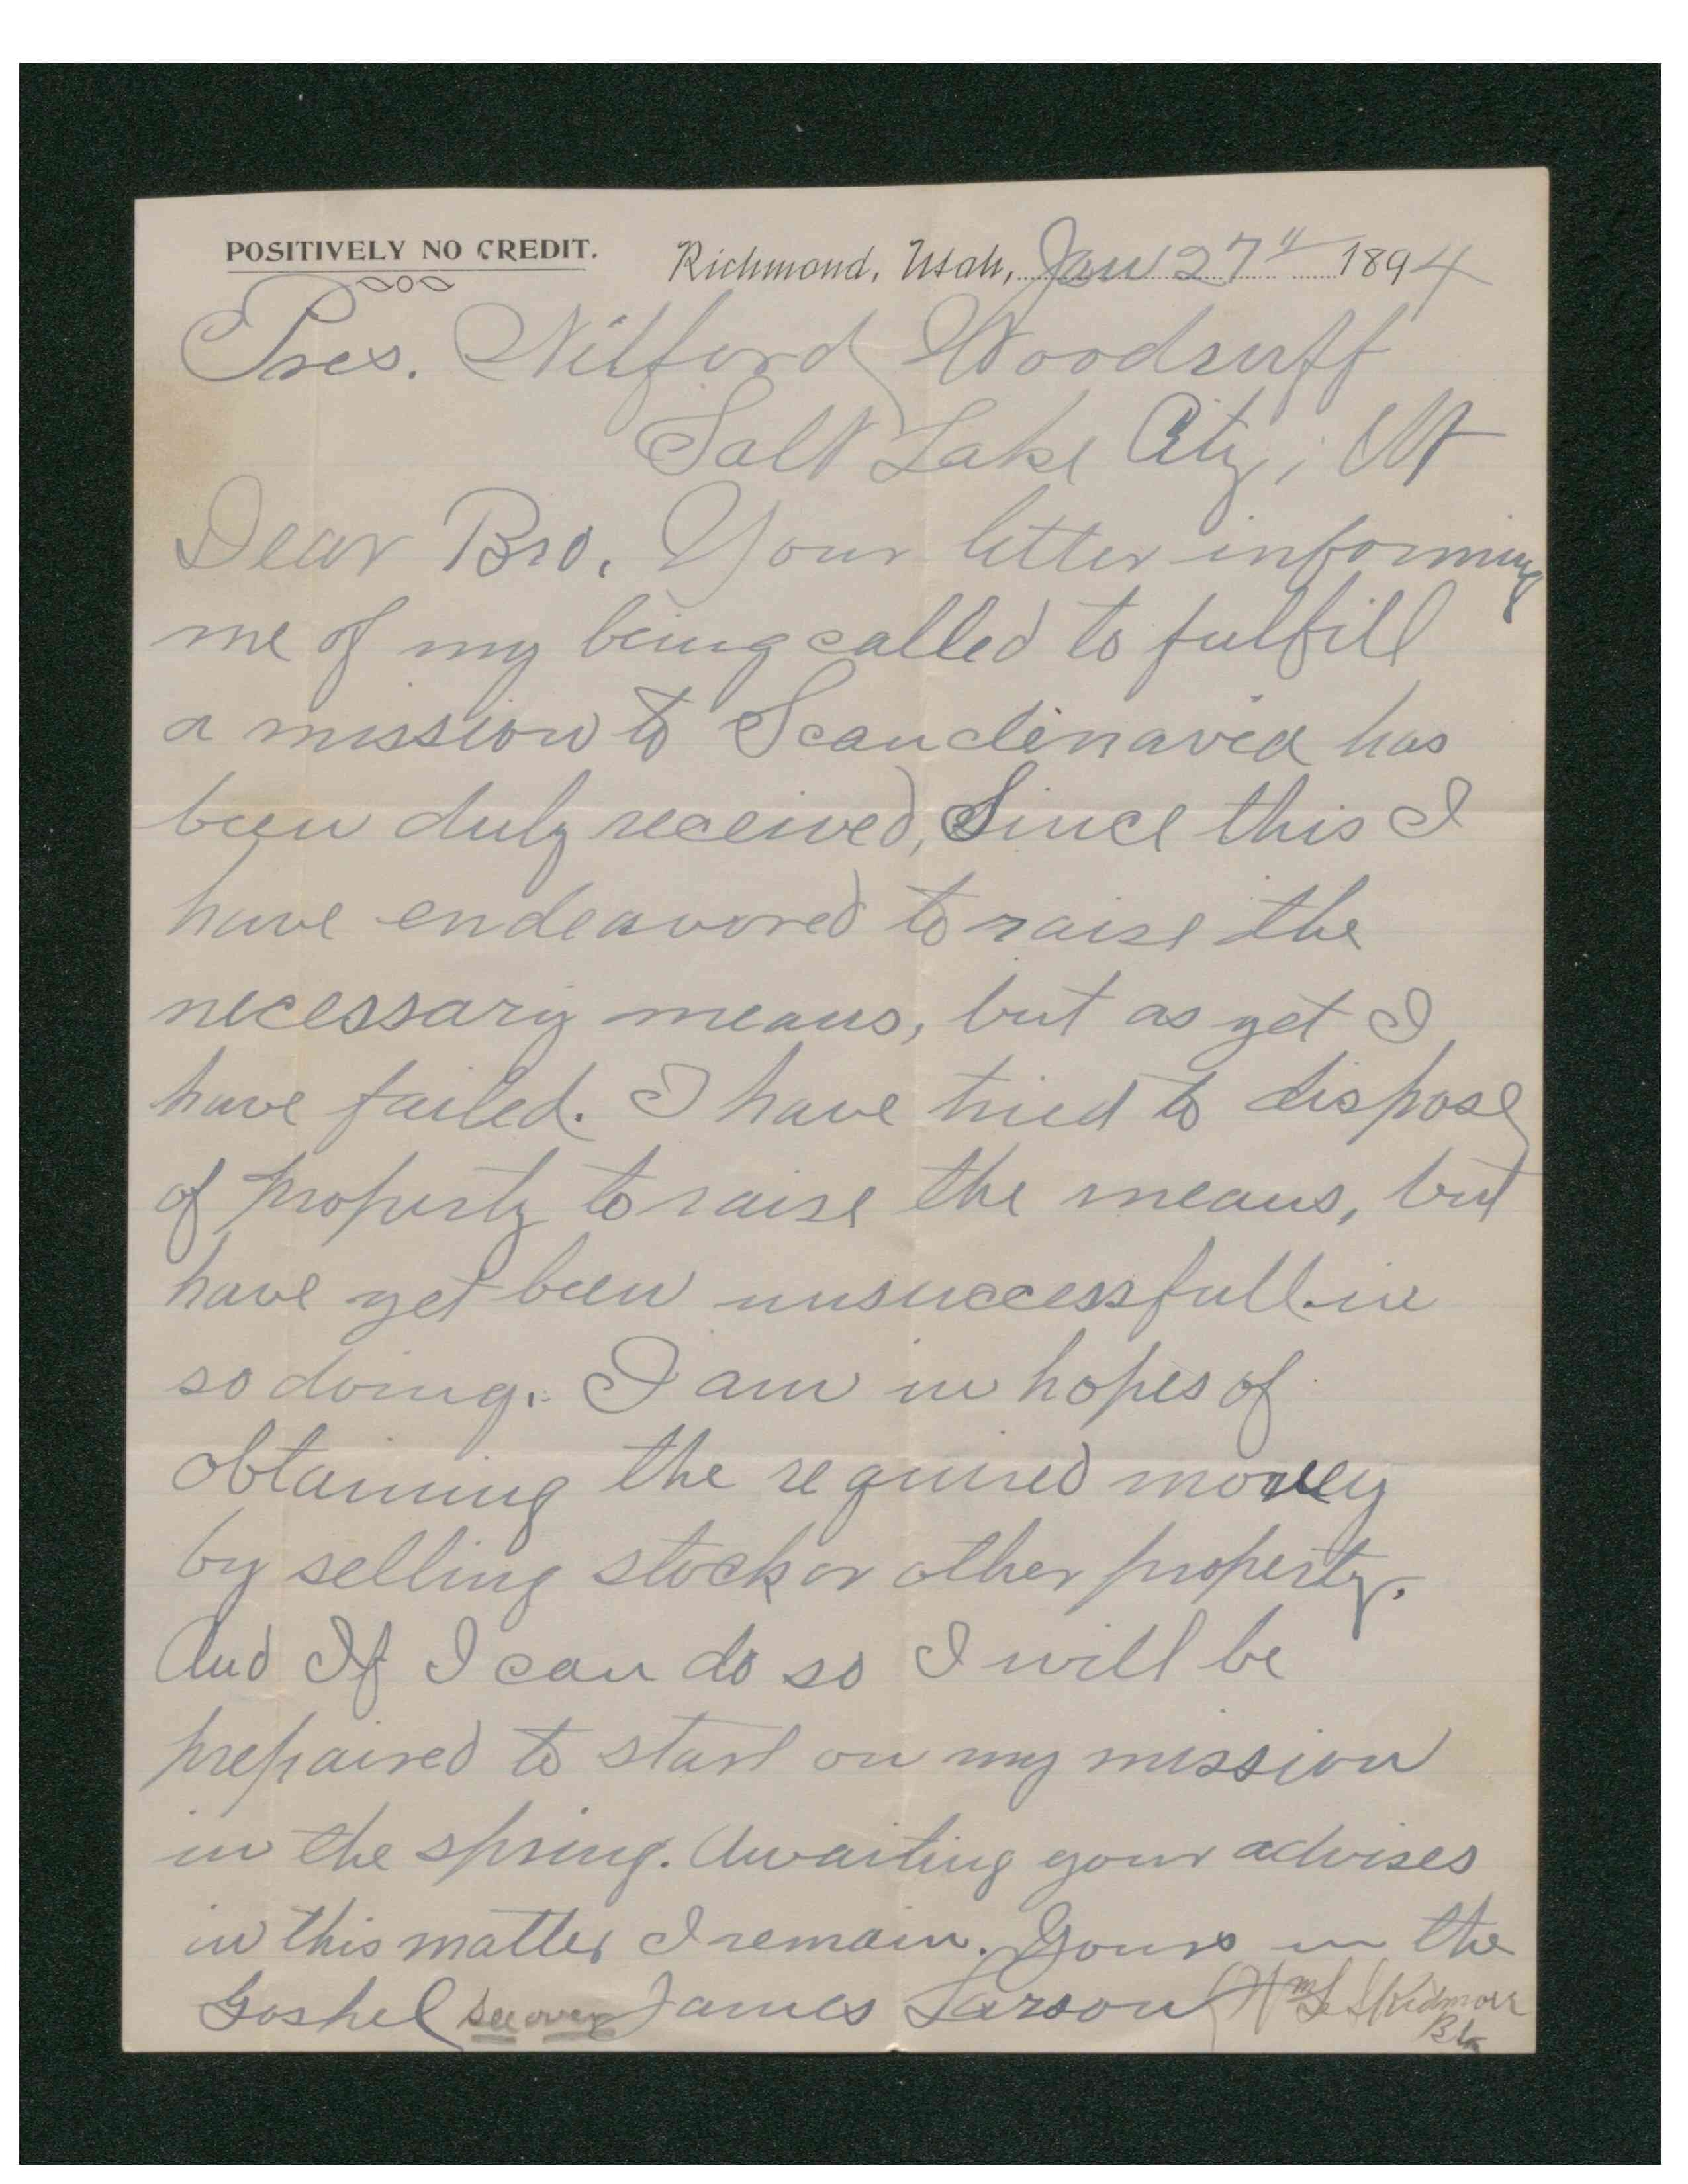 POSITIVELY NO CREDIT. Richmond, Utah, Jan 27th 1894
Pres. Wilford Woodruff
Salt Lake City, Ut
Dear Bro. Your letter informing
me of my being called to fulfill
a mission to Scandinavia has
been duly received, Since this I
have endeavored to raise the
necessary means, but as yet I
have failed. I have tried to dispose
of property to raise the means, but
have yet been unsuccessfull in
so doing. I am in hopes of
obtaining the required money
by selling stock or other property.
And If I can do so I will be
prepaired to start on my mission
in the spring. Awaiting your advises
in this matter I remain. Yours in the
Goshel see over James Larson Wm L Skidmore
Bp